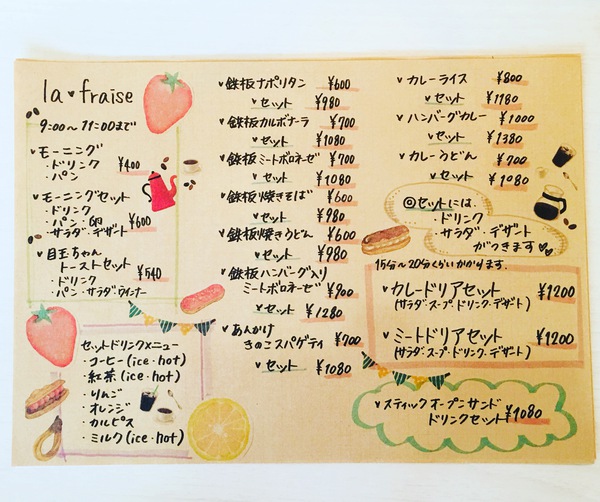 la♥fraise
9:00～11:00まで
♥モーニング
・ドリンク
・パン
¥400
♥モーニングセット
・ドリンク
・パン・卵
・サラダ・デザート
¥600
♥目玉ちゃん
トーストセット
・ドリンク
・パン・サラダウインナー
¥540
セットドリンクメニュー
・コーヒー(ice・hot)
・紅茶(ice・hot)
・りんご
・オレンジ
・カルピス
・ミルク(ice・hot)
♥鉄板ナポリタン ¥600
♥セット ¥980
♥鉄板カルボナーラ ¥700
♥セット ¥1080
♥鉄板ミートボロネーゼ ¥700
♥セット ¥1080
♥鉄板焼きそば ¥600
♥セット ¥980
♥鉄板焼きうどん ¥600
♥セット ¥980
♥鉄板ハンバーグ入り
ミートボロネーゼ ¥900
♥セット ¥1280
♥あんかけ
きのこスパゲティ ¥700
♥セット ¥1080
♥カレーライス ¥800
♥セット ¥1180
♥ハンバーグカレー ¥1000
♥セット ¥1380
♥カレーうどん ¥700
♥セット ¥1080
◎セットには
・ドリンク
・サラダ・デザート
がつきます♥♥
15分～20分くらいかかります.
♥カレードリアセット ¥1200
(サラダ・スープ・ドリンク・デザート)
♥ミートドリアセット ¥1200
(サラダ・スープ・ドリンク・デザート)
♥スティックオープンサンド
ドリンクセット ¥1080